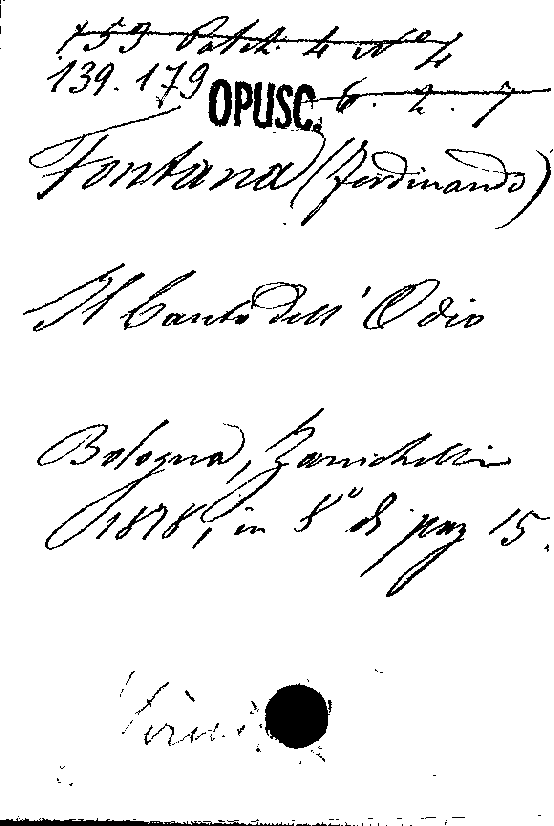 153 Patch. 4 N° 4
139.179
OPUSC. 6. 2. 7
Fontana (Ferdinando)
Il Canto dell' Odio
Bologna, Zanichelli
1878, in 8° di pag 15.